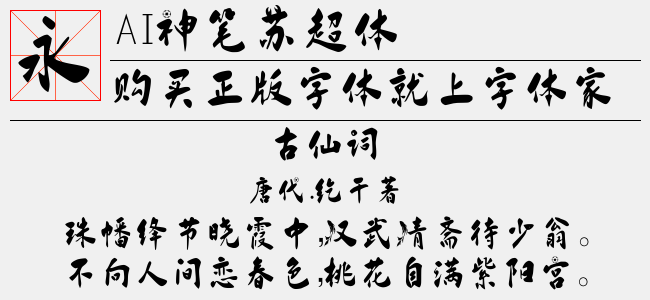 永
AI神笔苏超体
购买正版字体就上字体家
古仙词
唐代.纥干著
珠幡绛节晓霞中,汉武清斋待少翁。
不向人间恋春色,桃花自满紫阳宫。